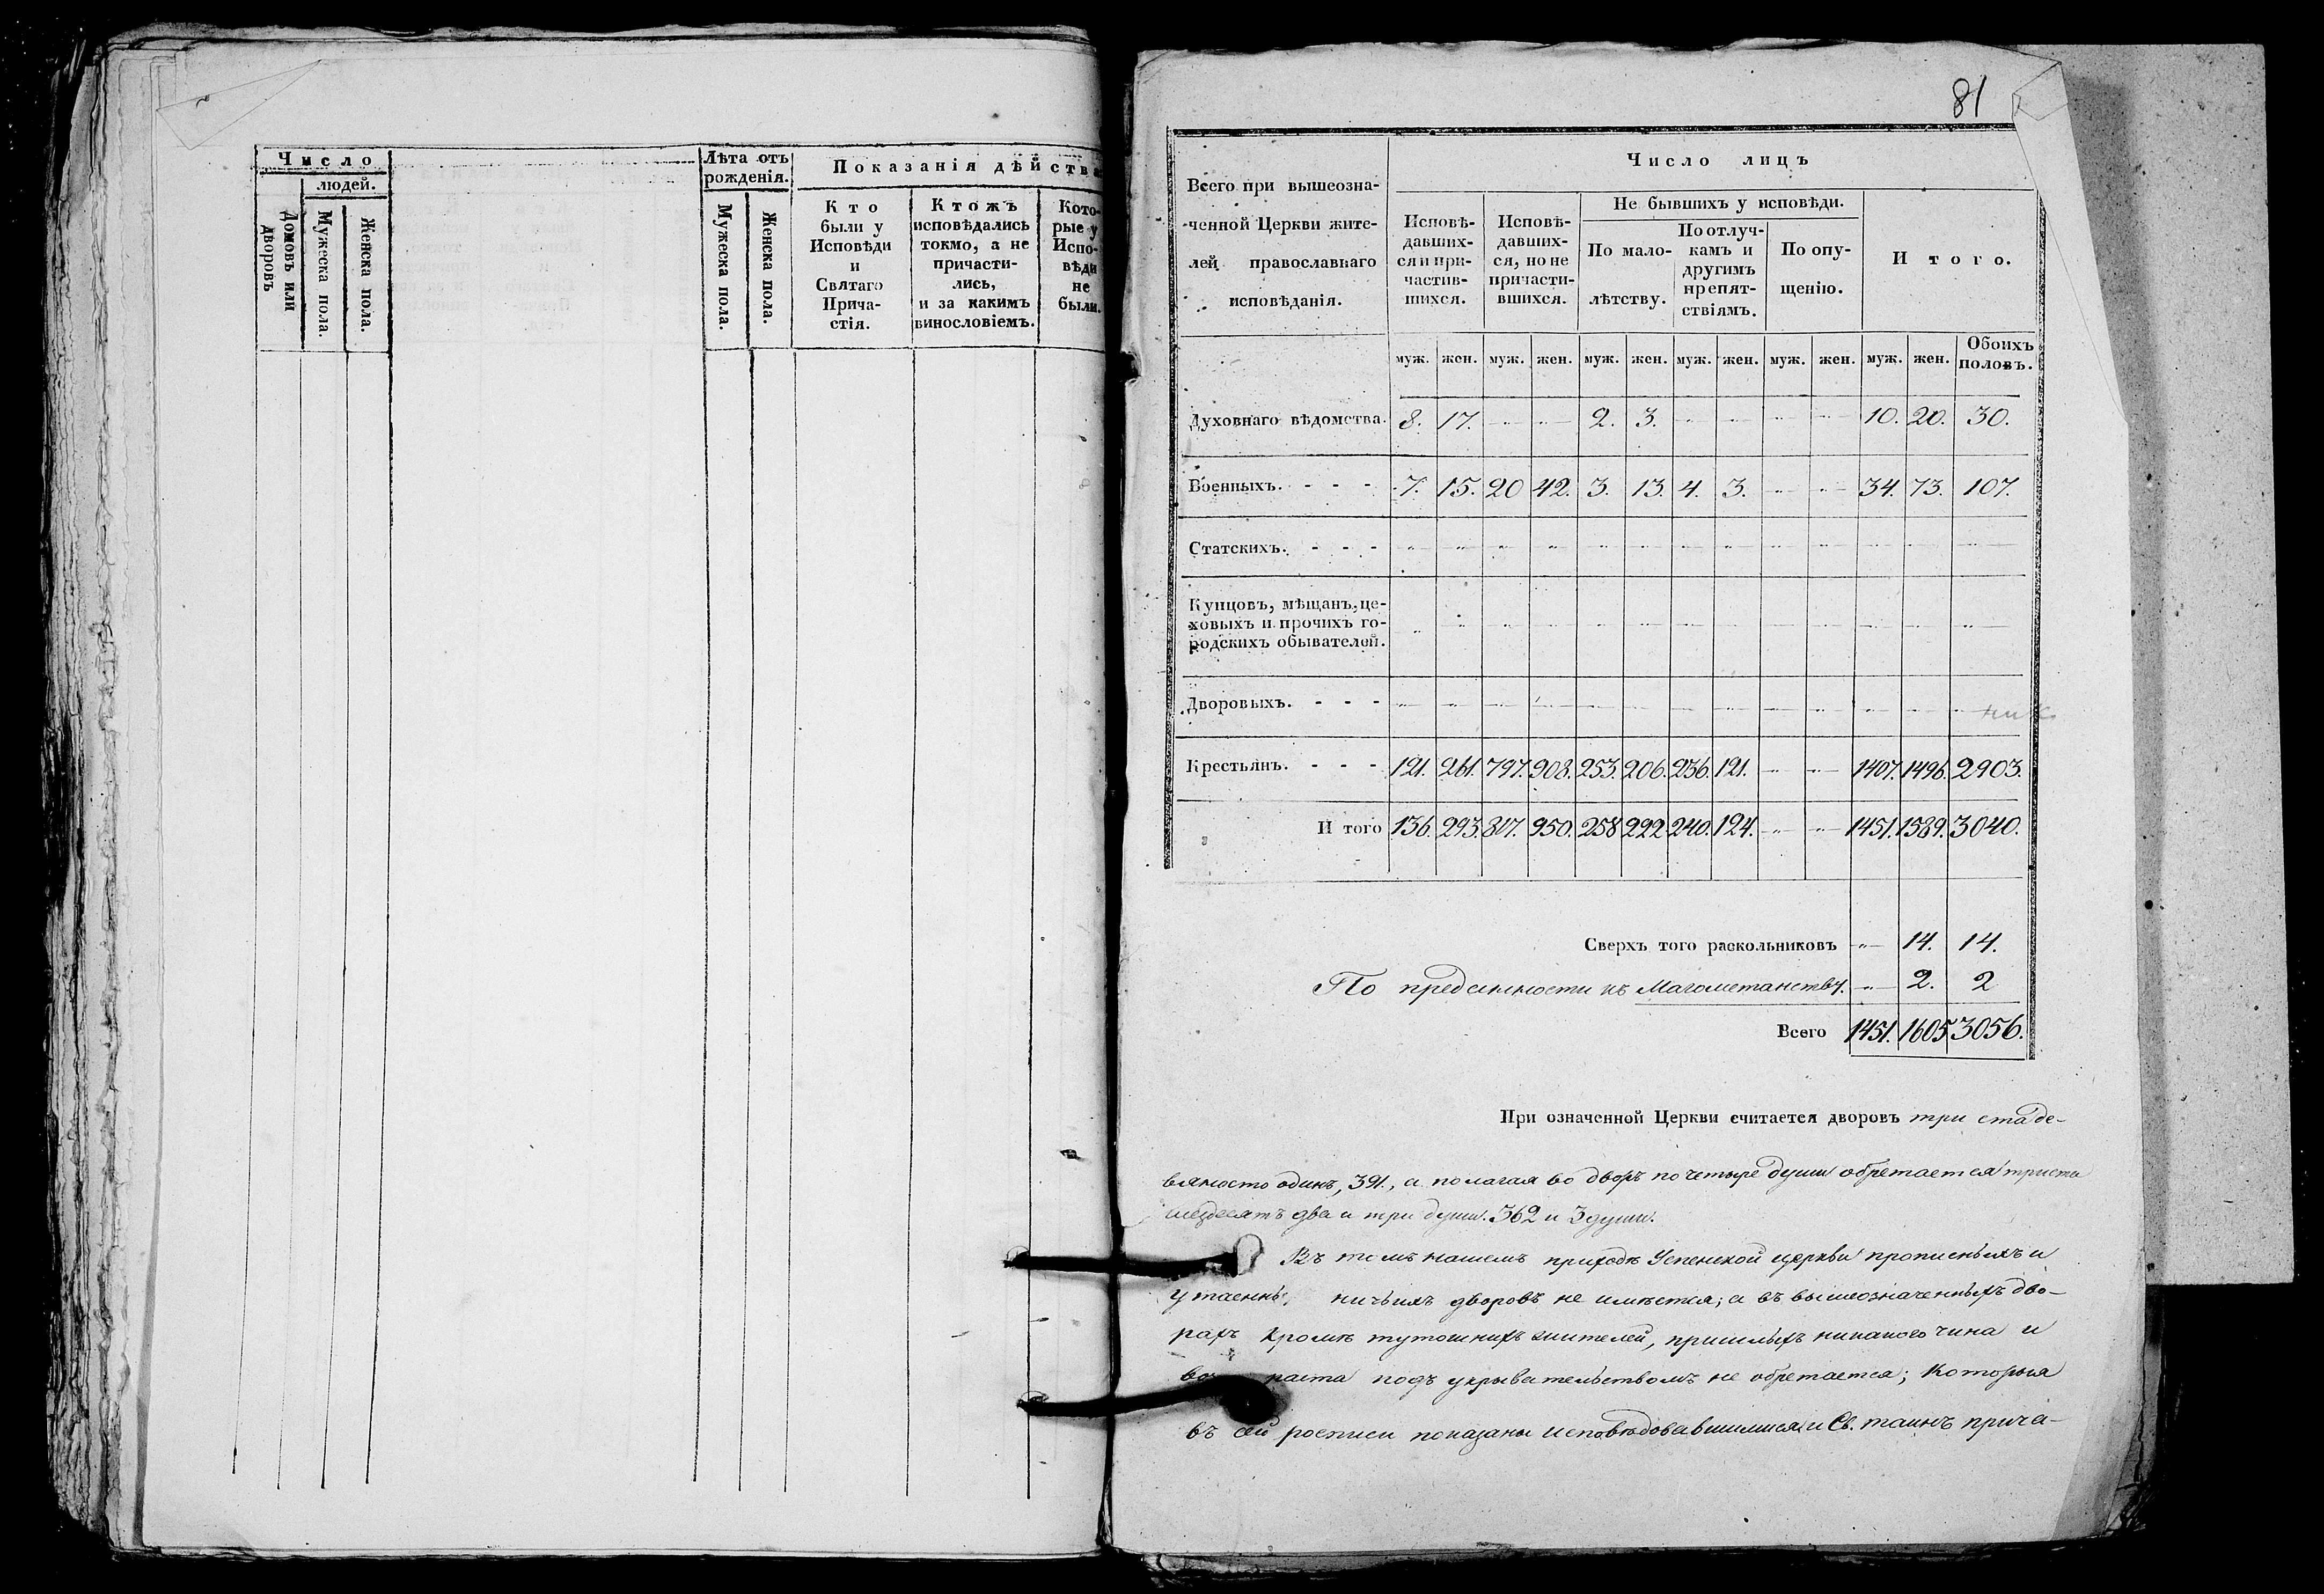 Число
людей.
Домовъ или дворовъ
Мужеска пола.
Женска пола.
Лѣта отъ рожденія.
Мужеска пола.
Женска пола.
Показанія дѣйства
Кто были у Исповѣди и Святаго Прича-стія.
Ктожъ исповѣдались токмо, а не причасти-лись, и за какимъ винословіемъ.
Кото-рые у Испо-вѣди не были.
81
Всего при вышеозна-
ченной Церкви жите-
лей православнаго
исповѣданія.
Число лицъ
Исповѣ-давших-ся и при-частив-шихся.
Исповѣ-давших-ся, но не причасти-вшихся.
Не бывшихъ у исповѣди.
По мало-лѣтству.
По отлуч-камъ и другимъ препят-ствіямъ.
По опу-щенію.
Итого.
муж. жен. муж. жен. муж. жен. муж. жен. муж. жен. муж. жен. Обоихъ половъ.
Духовнаго вѣдомства. 8. 17. — — 2. 3. — — — — 10. 20. 30.
Военныхъ. - - - 7. 15. 20 42. 3. 13. 4. 3. — — 34. 73. 107.
Статскихъ. - - - — — — — — — — — — — — — —
Купцовъ, мѣщанъ, це-
ховыхъ и прочихъ го-
родскихъ обывателей. — — — — — — — — — — — — —
Дворовыхъ. - - - — — — — — — — — — — — — —
Крестьянъ. - - - 121. 261. 797. 908. 253. 206. 236. 121. — — 1407. 1496. 2903.
Итого 136. 293. 817. 950. 258 222 240. 124. — — 1451. 1589. 3040.
Сверхъ того раскольниковъ — 14. 14.
По преданности къ Магометанству. — 2. 2
Всего 1451. 1605 3056.
При означенной Церкви считается дворовъ три ста де-
вяносто одинъ, 391., а полагая во дворъ по четыре души обретается триста
шездесятъ два и три души. 362 и 3 души.
Въ томъ нашемъ приходѣ Успенской церкви прописныхъ и
утаенны ничьихъ дворовъ не имѣется; а въ вышеозначенныхъ дво-
рахъ кромѣ тутошнихъ жителей, пришлыхъ никакого чина и
воз раста подъ укрывательствомъ не обретается; Которыя
въ сей росписи показаны исповѣдовавшимися и Св. таинъ прича-